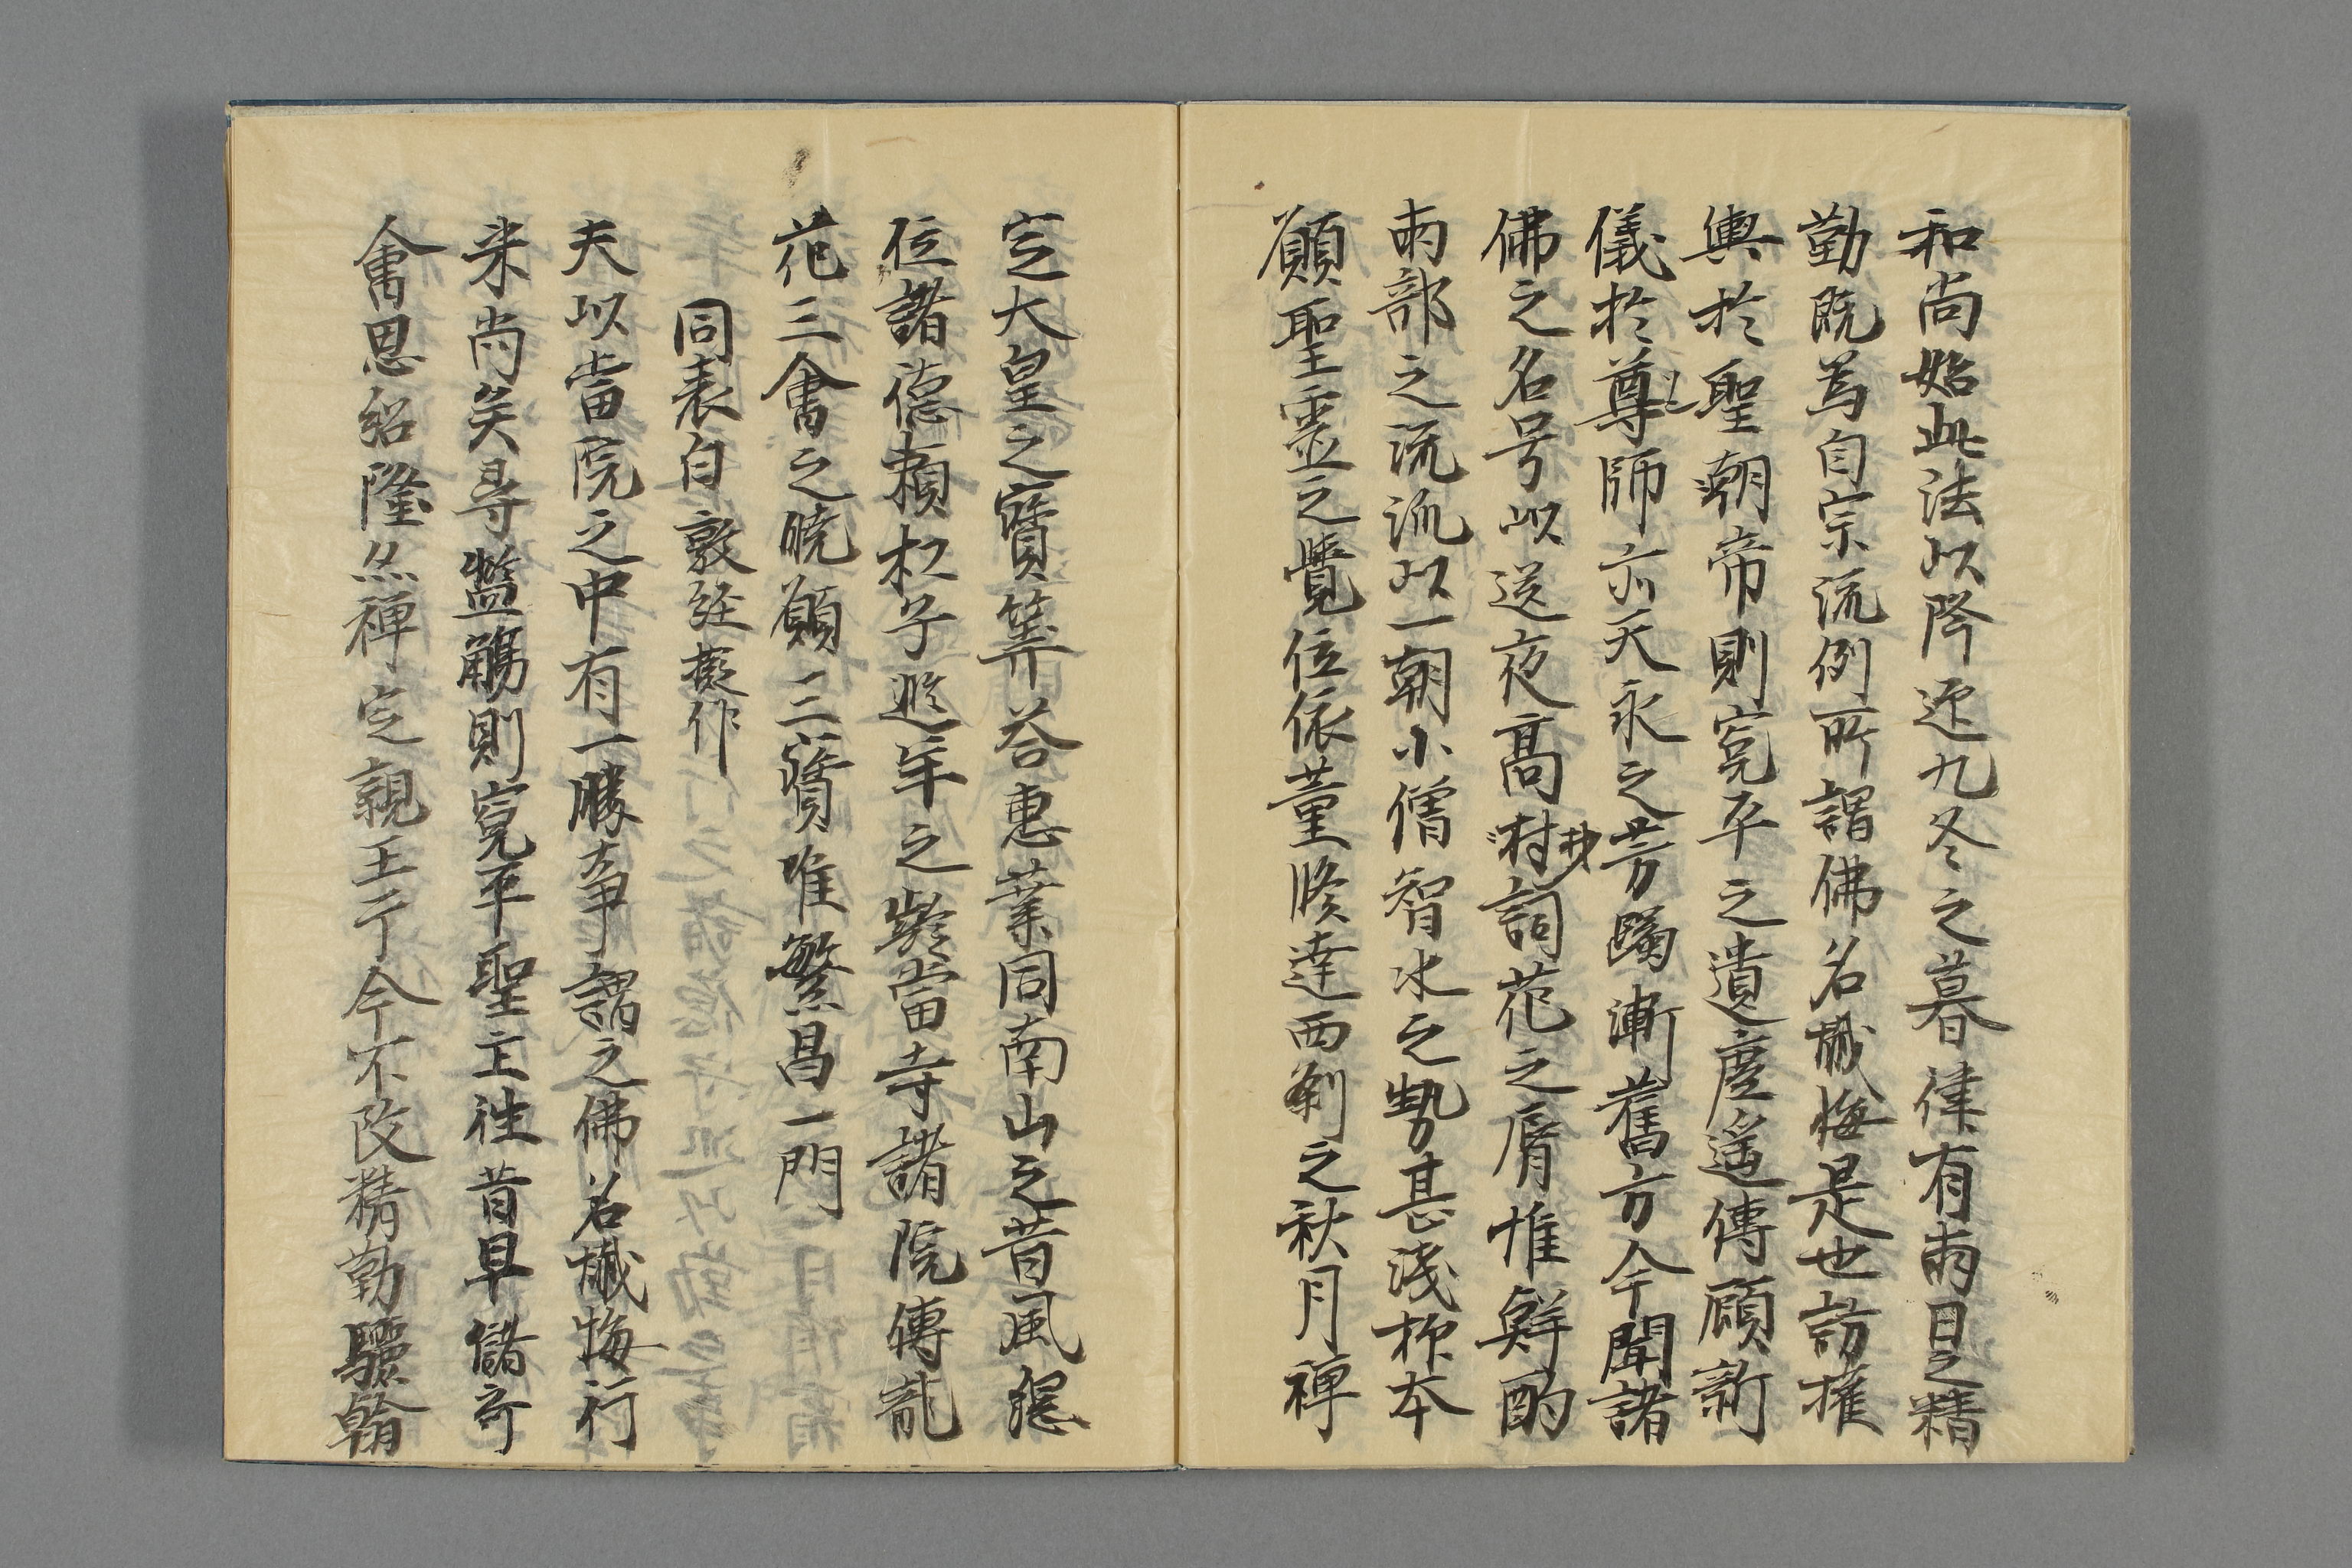 和尚始此法以降迎九冬之暮律有両日之精
勤既為自宗流例所謂佛名懺悔是也訪権
輿於聖朝帝則寛平之遺塵遥傳顧新
儀於尊師亦天永之芳躅漸舊方今聞諸
佛之名号以送夜高村詞花之脣惟鮮酌
両部之流派以一朝小僧智水之勢甚浅抑本
願聖霊之覺位依薫修達西刹之秋月禅
定大皇之寳筭答惠業同南山之昔風
位諸徳頼松子遐年之齢當寺諸院傳龍
花三會之暁願三寳唯繁昌一門
同表白敦経擬作
夫以當院之中有一勝事謂之佛名懺悔行
来尚矣尋濫觴則寛平聖主往昔早儲斎
會思紹隆亦禅定親王于今不改精勤驗